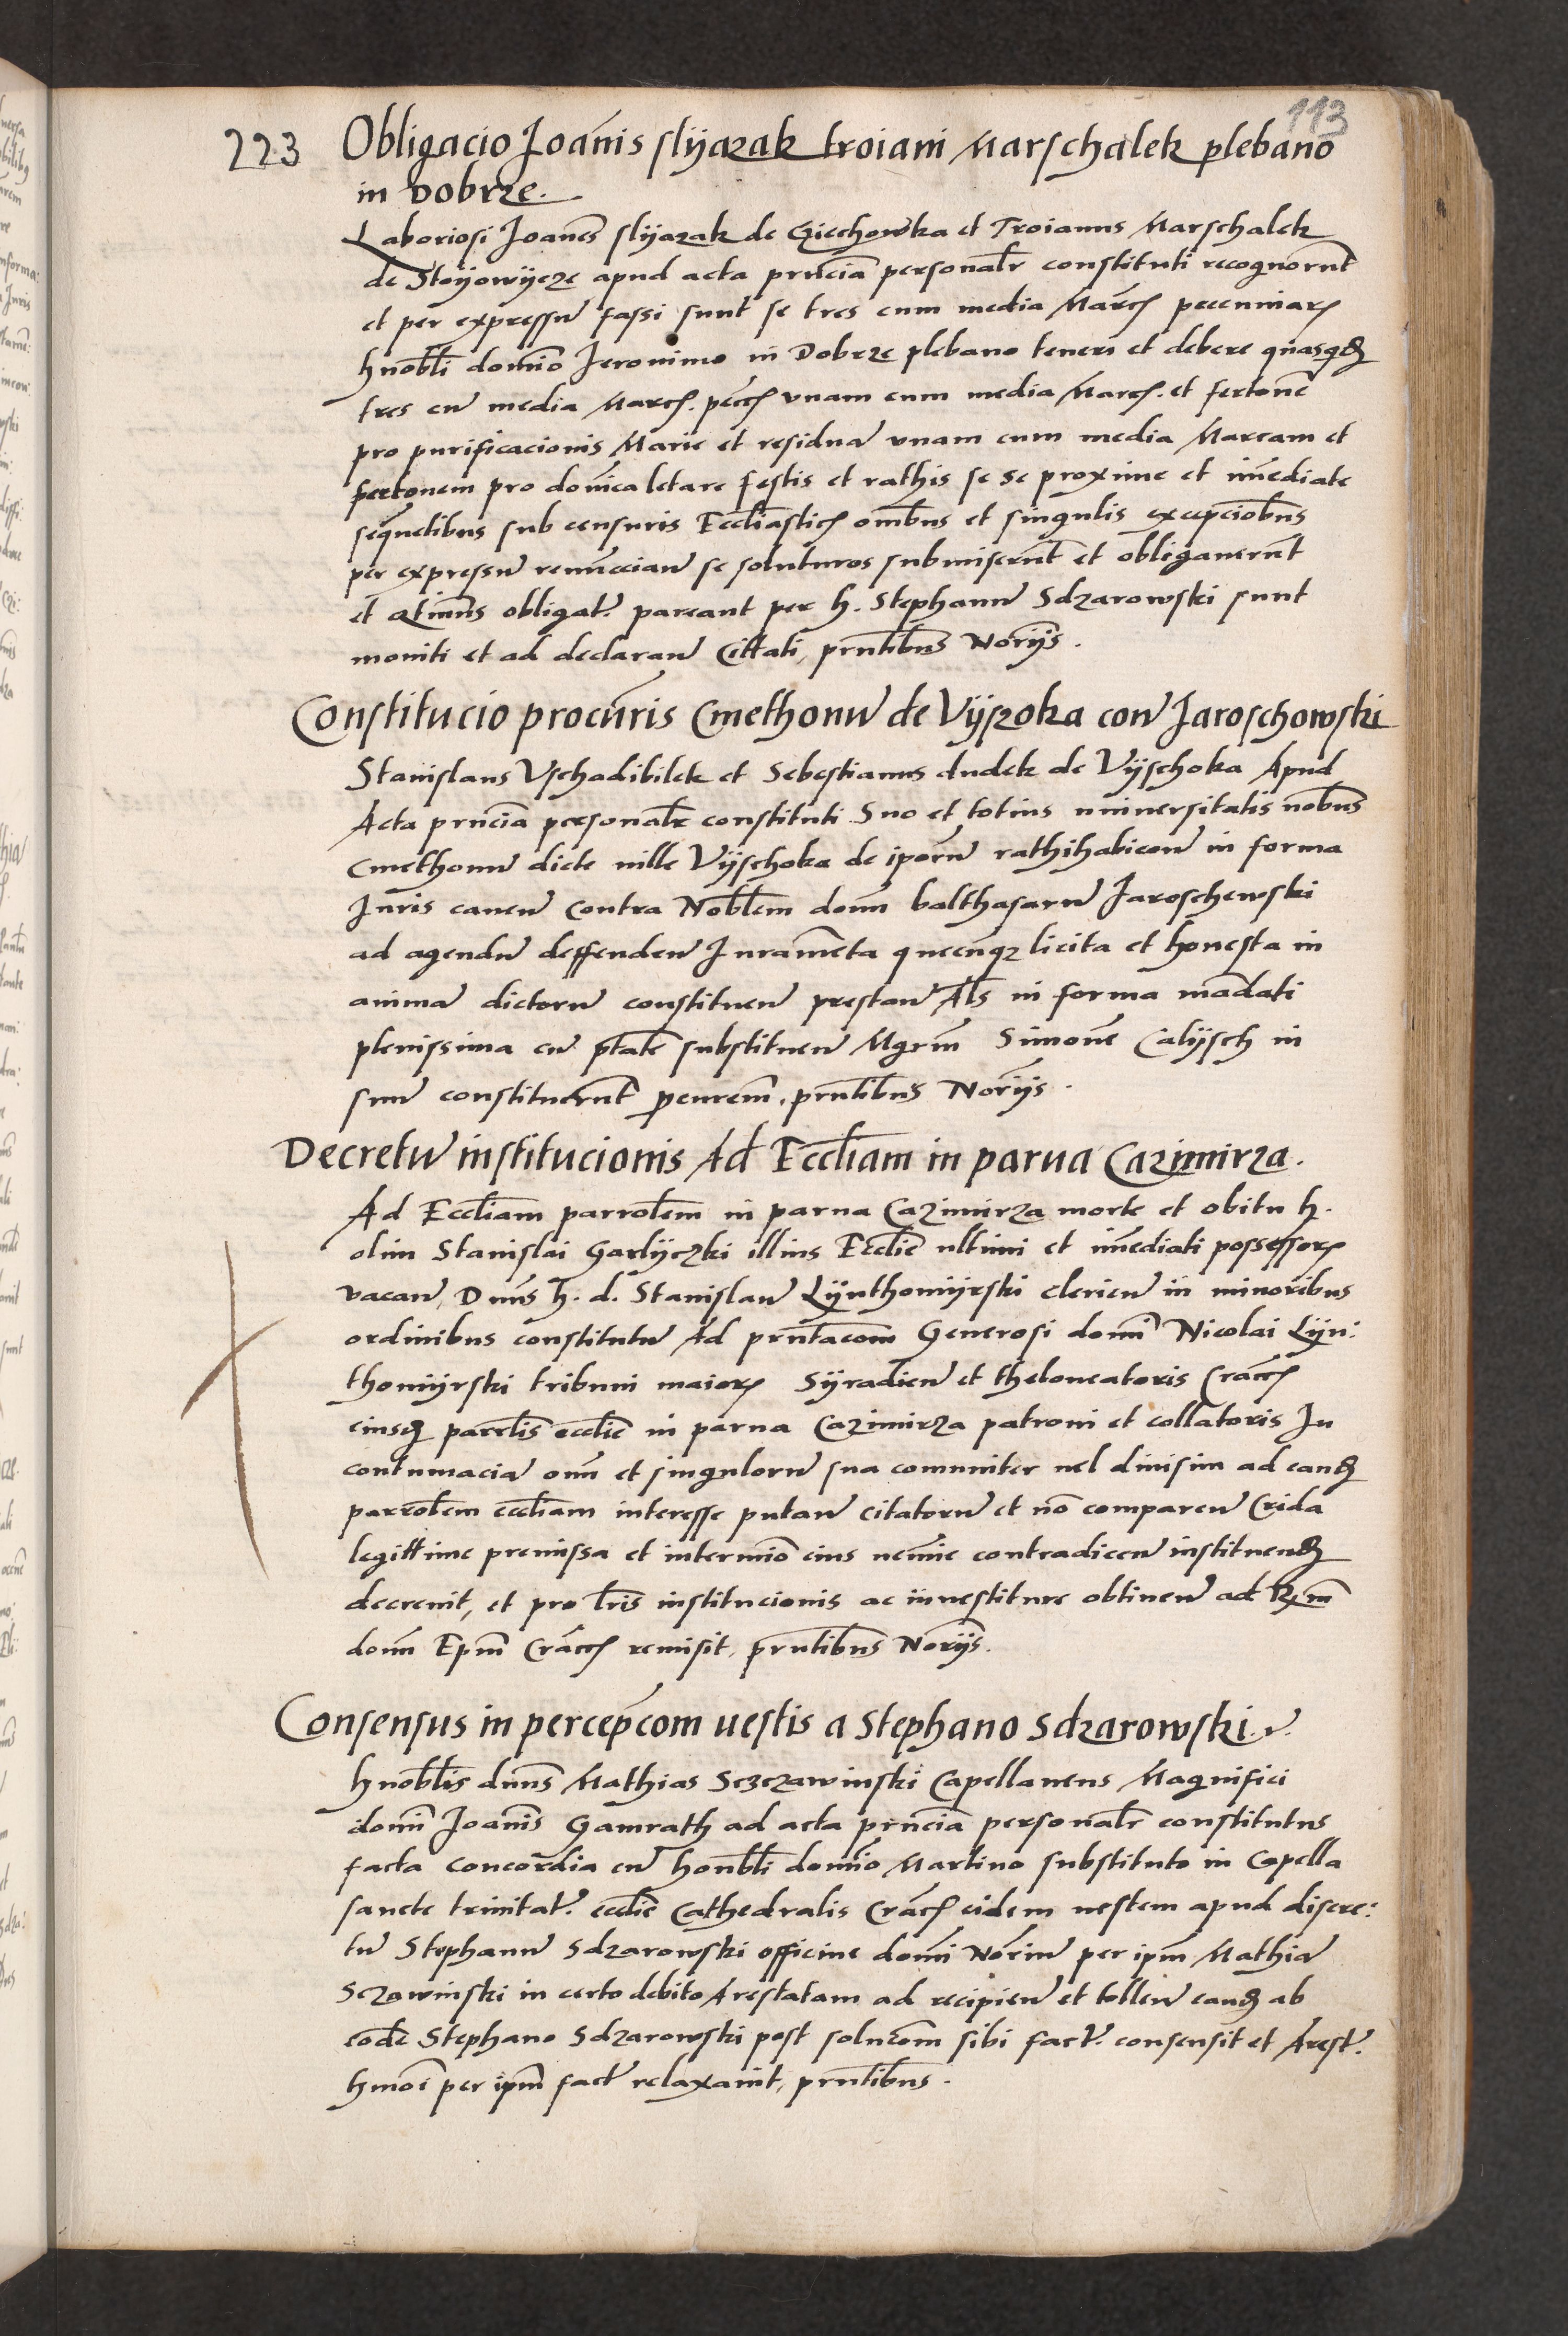 113
223 Obligacio Joañis slyazak troiani Marschalek plebano
in Dobrze.
Laboriosi Joanēs slyazak de Giechowka et Troianus Marschalek
de Stoyowycze apud acta prñcia personalr̃ constituti recognorũt
et per expressū fassi sunt se tres cum media Marcꝭ pecuniarꝭ
hnobl̃i domĩo Jeronimo in Dobrze plebano teneri et debere quasqꝫ
tres cū media Marcꝭ. pecꝭ vnam cum media Marcꝭ. et fertonē
pro purificacionis Marie et residuā vnam cum media Marcam et
fertonem pro domĩca letare festis et rathis se se proxime et im̃ediate
sequētibus sub censuris Eccl̃iasticꝭ om̃bus et singulis excepciõbus
per expressū renūccian̄ se soluturos submiserũt et obligauerũt
et qtinus obligat. pareant per h. Stephanū Sdzarowski sunt
moniti et ad declaran̄ Cittati, prñtibus Norijs.
Constitucio procur̃is Cmethonū de Vyszoka con̄ Jaroschowski
Stanislaus Vschadibilek et Sebestianus dudek de Vyschoka Apud
Acta prñcia personalr̃ constituti Suo et totius uniuersitatis nõbus
Cmethonū dicte uille Vyschoka de ipõrū rathihabicōn̄ in forma
Juris cauen̄ contra Nobl̃em dom̄ balthasarū Jaroschewski
ad agendū deffenden̄ Juramēta quecũqꝫ licita et honesta in
animā dictorū constituen̄ prestan̄ Al̃s in forma mādati
plenissima cū ptãte substituen̄ Mgrm̄ Simonē Calysch in
suū constituerũt pcurem̄, prñtibus Norijs.
Decretū institucionis Ad Eccl̃iam in parua Cazimirza.
Ad Eccl̃iam parrol̃em in parua Cazimirza morte et obitu h.
olim Stanislai Garlyczki illius Eccl̃ie ultimi et im̃ediati possessorꝭ
vacan̄, Dnũs h. d. Stanislaū Lynthomyrski clericū in minoribus
ordinibus constitutū Ad prñtacom̄ Generosi domĩ Nicolai Lyn:
thomyrski tribuni maiorꝭ Syradien̄ et theloneatoris Cracꝭ
eiusqꝫ parrl̃is eccl̃ie in parua Cazimirza patroni et collatoris Jn
contumaciā om̄ et singulorū sua comuniter uel diuisim ad eanqꝫ
parrol̃em eccl̃iam interesse putan̄ citatorū et nõ comparen̄ Crida
legittime premissa et intermĩo eius nem̃ie contradicen̄ instituenqꝫ
decreuit, et pro l̃ris institucionis ac inuestiture obtinen̄ ad R̃dm̄
dom̄ Epm̄ Cracꝭ remisit, prñtibus Norijs.
Consensus in percepc̃om uestis a Stephano Sdzarowski.
hnobl̃is dnũs Mathias Sczczawinski Capellanens Magnifici
domĩ Joañis Gamrath ad acta prñcia personalr̃ constitutus
facta concordia cū honbl̃i domĩo Martino substituto in Capella
sancte trinitat. eccl̃ie Cathedralis Cracꝭ eidem uestem apud discre:
tū Stephanū Sdzarowski officine domĩ Norĩū per ipm̄ Mathiā
Sczawinski in certo debito Arestatam ad recipien̄ et tollen̄ eanqꝫ ab
eodē Stephano Sdzarowski post solucõm sibi fact. consensit et Arest.
hmõi per ipm̄ fact relaxauit, prñtibus.